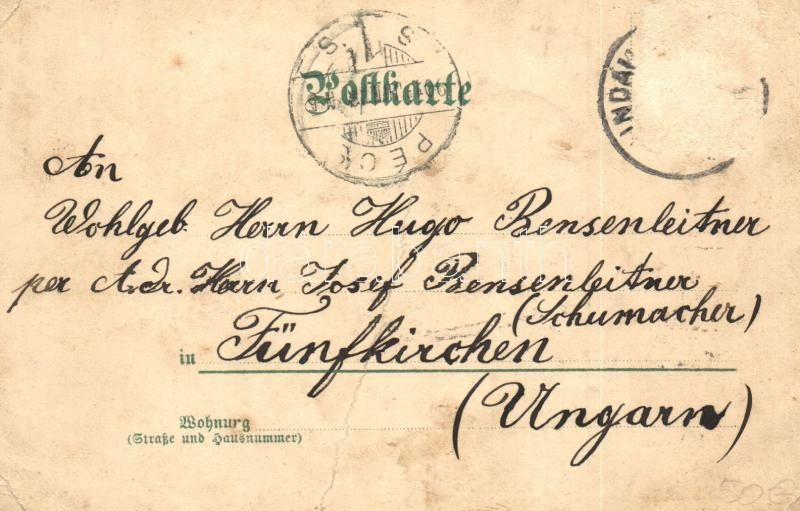 Postkarte
PÉCS
INDA
An
Wohlgeb. Herrn Hugo Bensenleitner
per Adr. Herrn Josef Bensenleitner
(Schumacher)
in Fünfkirchen
(Ungarn)
Wohnung
(Straße und Hausnummer)
darabanth
50€